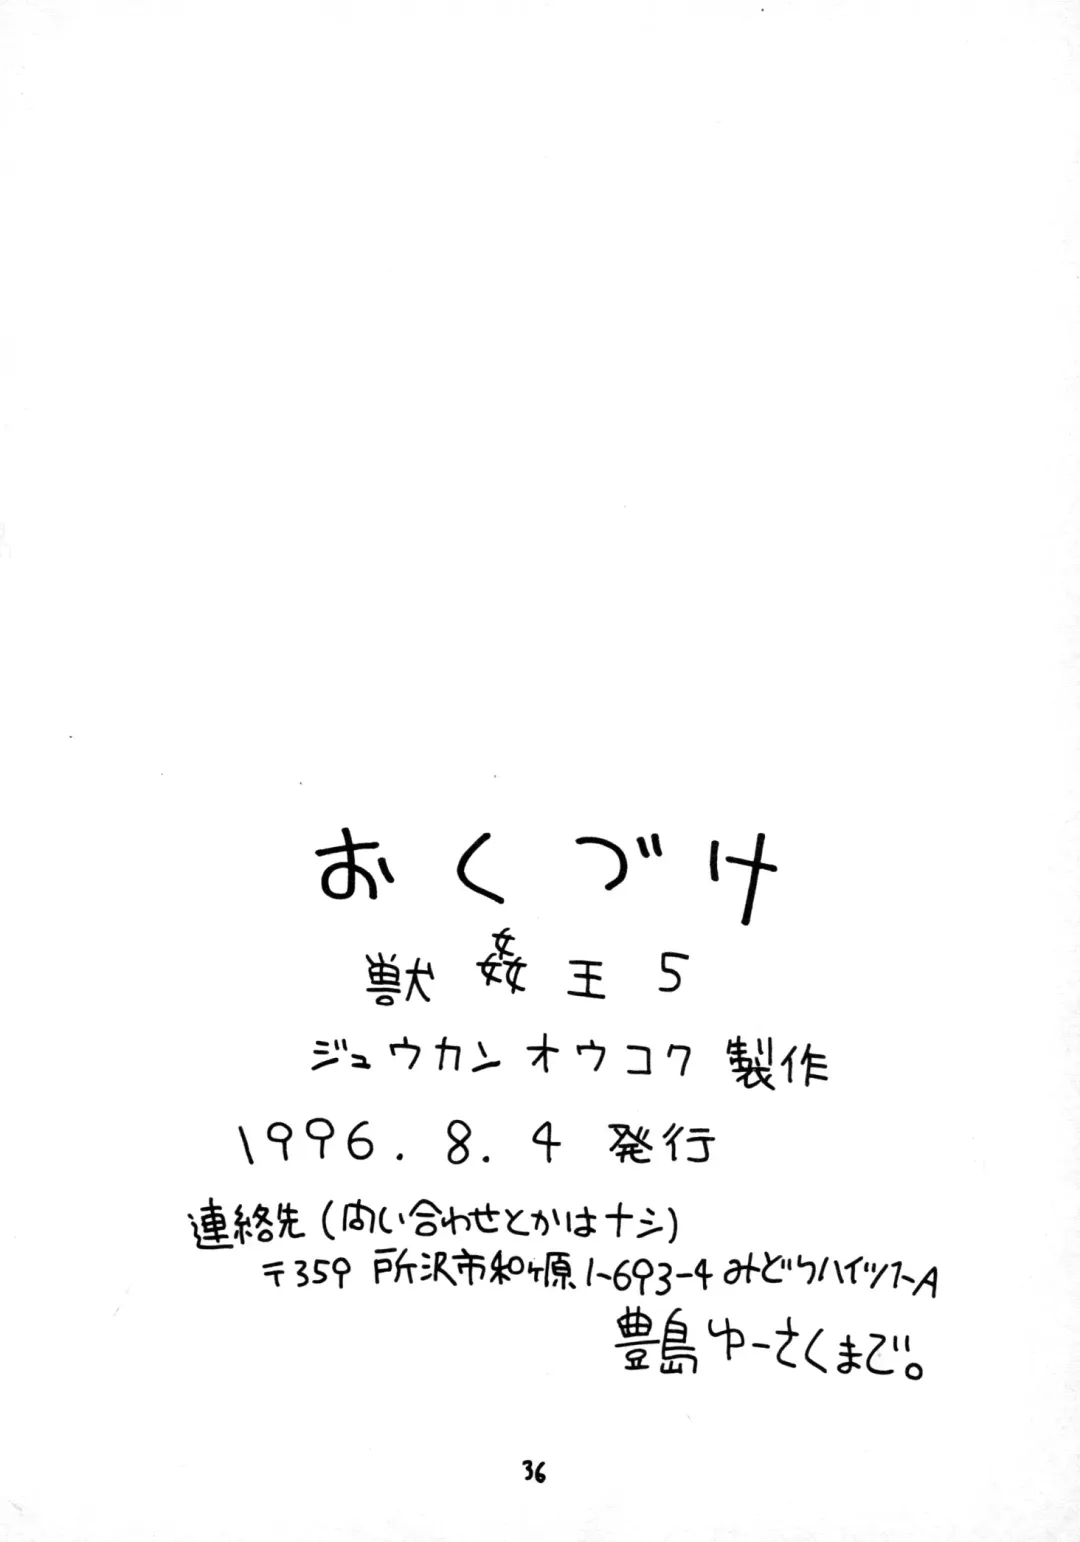 おくづけ
獣姦王5
ジュウカンオウコク 製作
1996.8.4 発行
連絡先(問い合わせとかはナシ)
〒359 所沢市和ヶ原1-693-4 みどりハイツ1-A
豊島ゆーさくまで。
36